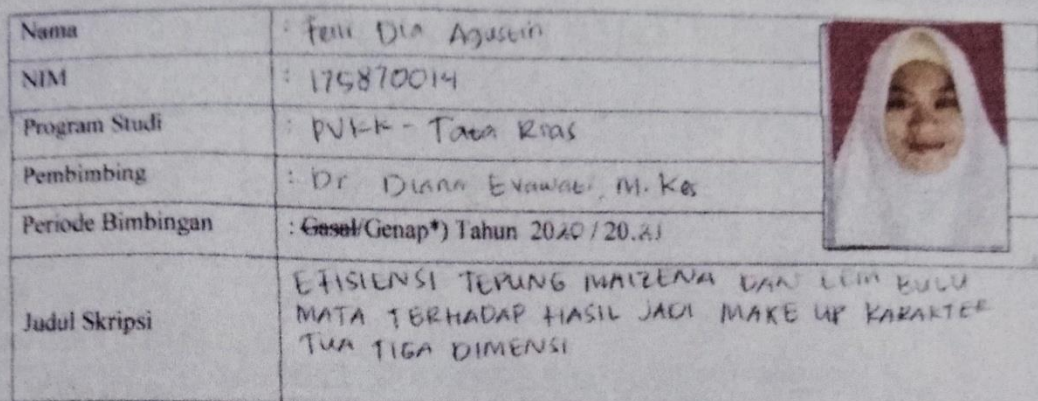 Nama : Felli Dia Agustin
NIM : 175870014
Program Studi : PVKK - Tata Rias
Pembimbing : Dr Diana Evawati, M. Kes
Periode Bimbingan : Gasal/Genap*) Tahun 2020 / 2021
Judul Skripsi EFISIENSI TEPUNG MAIZENA DAN LEM BULU
MATA TERHADAP HASIL JADI MAKE UP KARAKTER
TUA TIGA DIMENSI